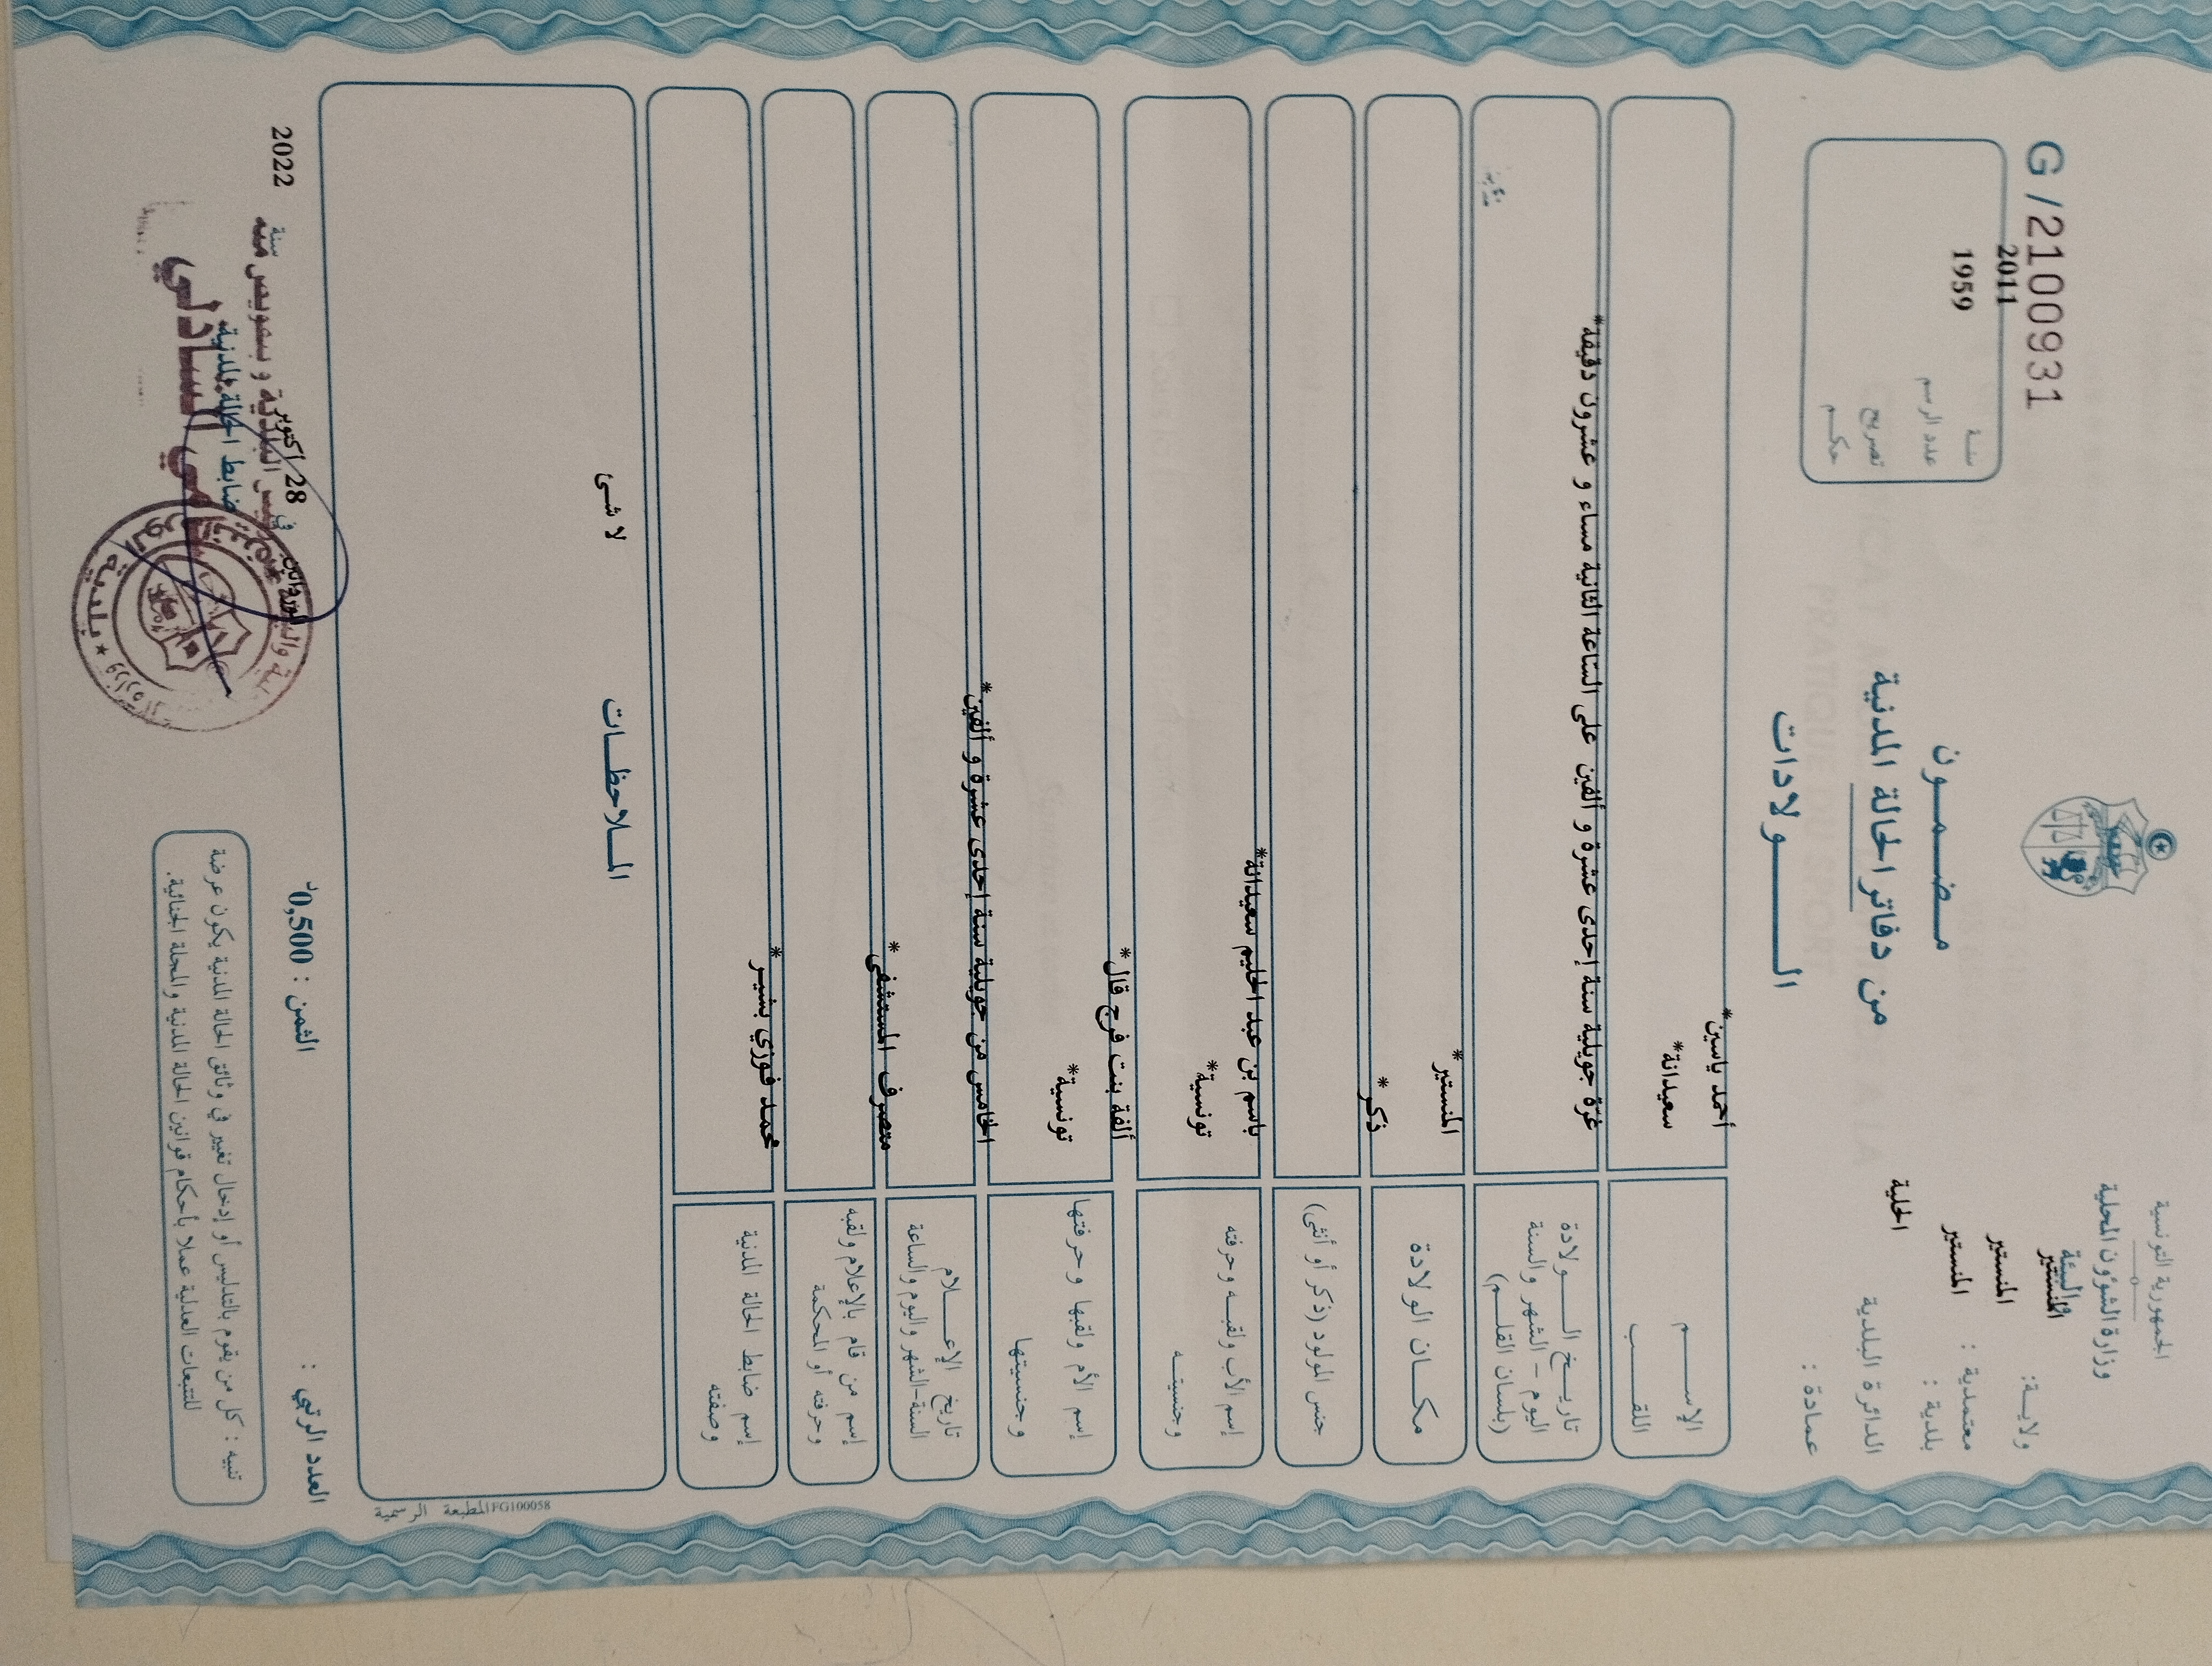 الجمهورية التونسية
وزارة الشؤون المحلية
والبيئة
المنستير
ولايـة:
المنستير
معتمدية :
المنستير
بلدية :
الدائرة البلدية
الحلية
عمادة :
G /2100931
2011
سنـة
1959
عدد الرسم
تصريح
حكـم
مـضـمـون
من دفاتر الحالة المدنية
الــولادات
الإســـم
أحمد ياسين*
اللقـــب
سعيدانة*
تاريــخ الــــولادة
اليوم – الشهر والسنة
(بلسان القلـــم)
غرّة جويلية سنة إحدى عشرة و ألفين على الساعة الثانية مساء و عشرون دقيقة*
مكـــان الولادة
المنستير*
جنس المولود (ذكر أو أنثى)
ذكر*
إسم الأب ولقبـــه وحرفته
باسم بن عبد الحليم سعيدانة*
وجنسيتـــه
تونسية*
إسم الأم ولقبها وحرفتها
ألفة بنت فرج قال*
وجنسيتها
تونسية*
تاريخ الإعـــلام
السنة-الشهر واليوم والساعة
الخامس من جويلية سنة إحدى عشرة و ألفين*
إسم من قام بالإعلام ولقبه
وحرفته أو المحكمة
متصرف المستشفى*
إسم ضابط الحالة المدنية
وصفته
محمد فوزي بشير*
المــلاحظـــات
لا شئ
المطبعة الرسمية FG100058
العدد الرتبي :
الثمن : 0,500د
الوردانين
في
28 أكتوبر
سنة
2022
ضابط الحالة المدنية
تنبيه : كل من يقوم بالتدليس أو إدخال تغيير في وثائق الحالة المدنية يكون عرضة
للتتبعات العدلية عملا بأحكام قوانين الحالة المدنية والمجلة الجنائية.